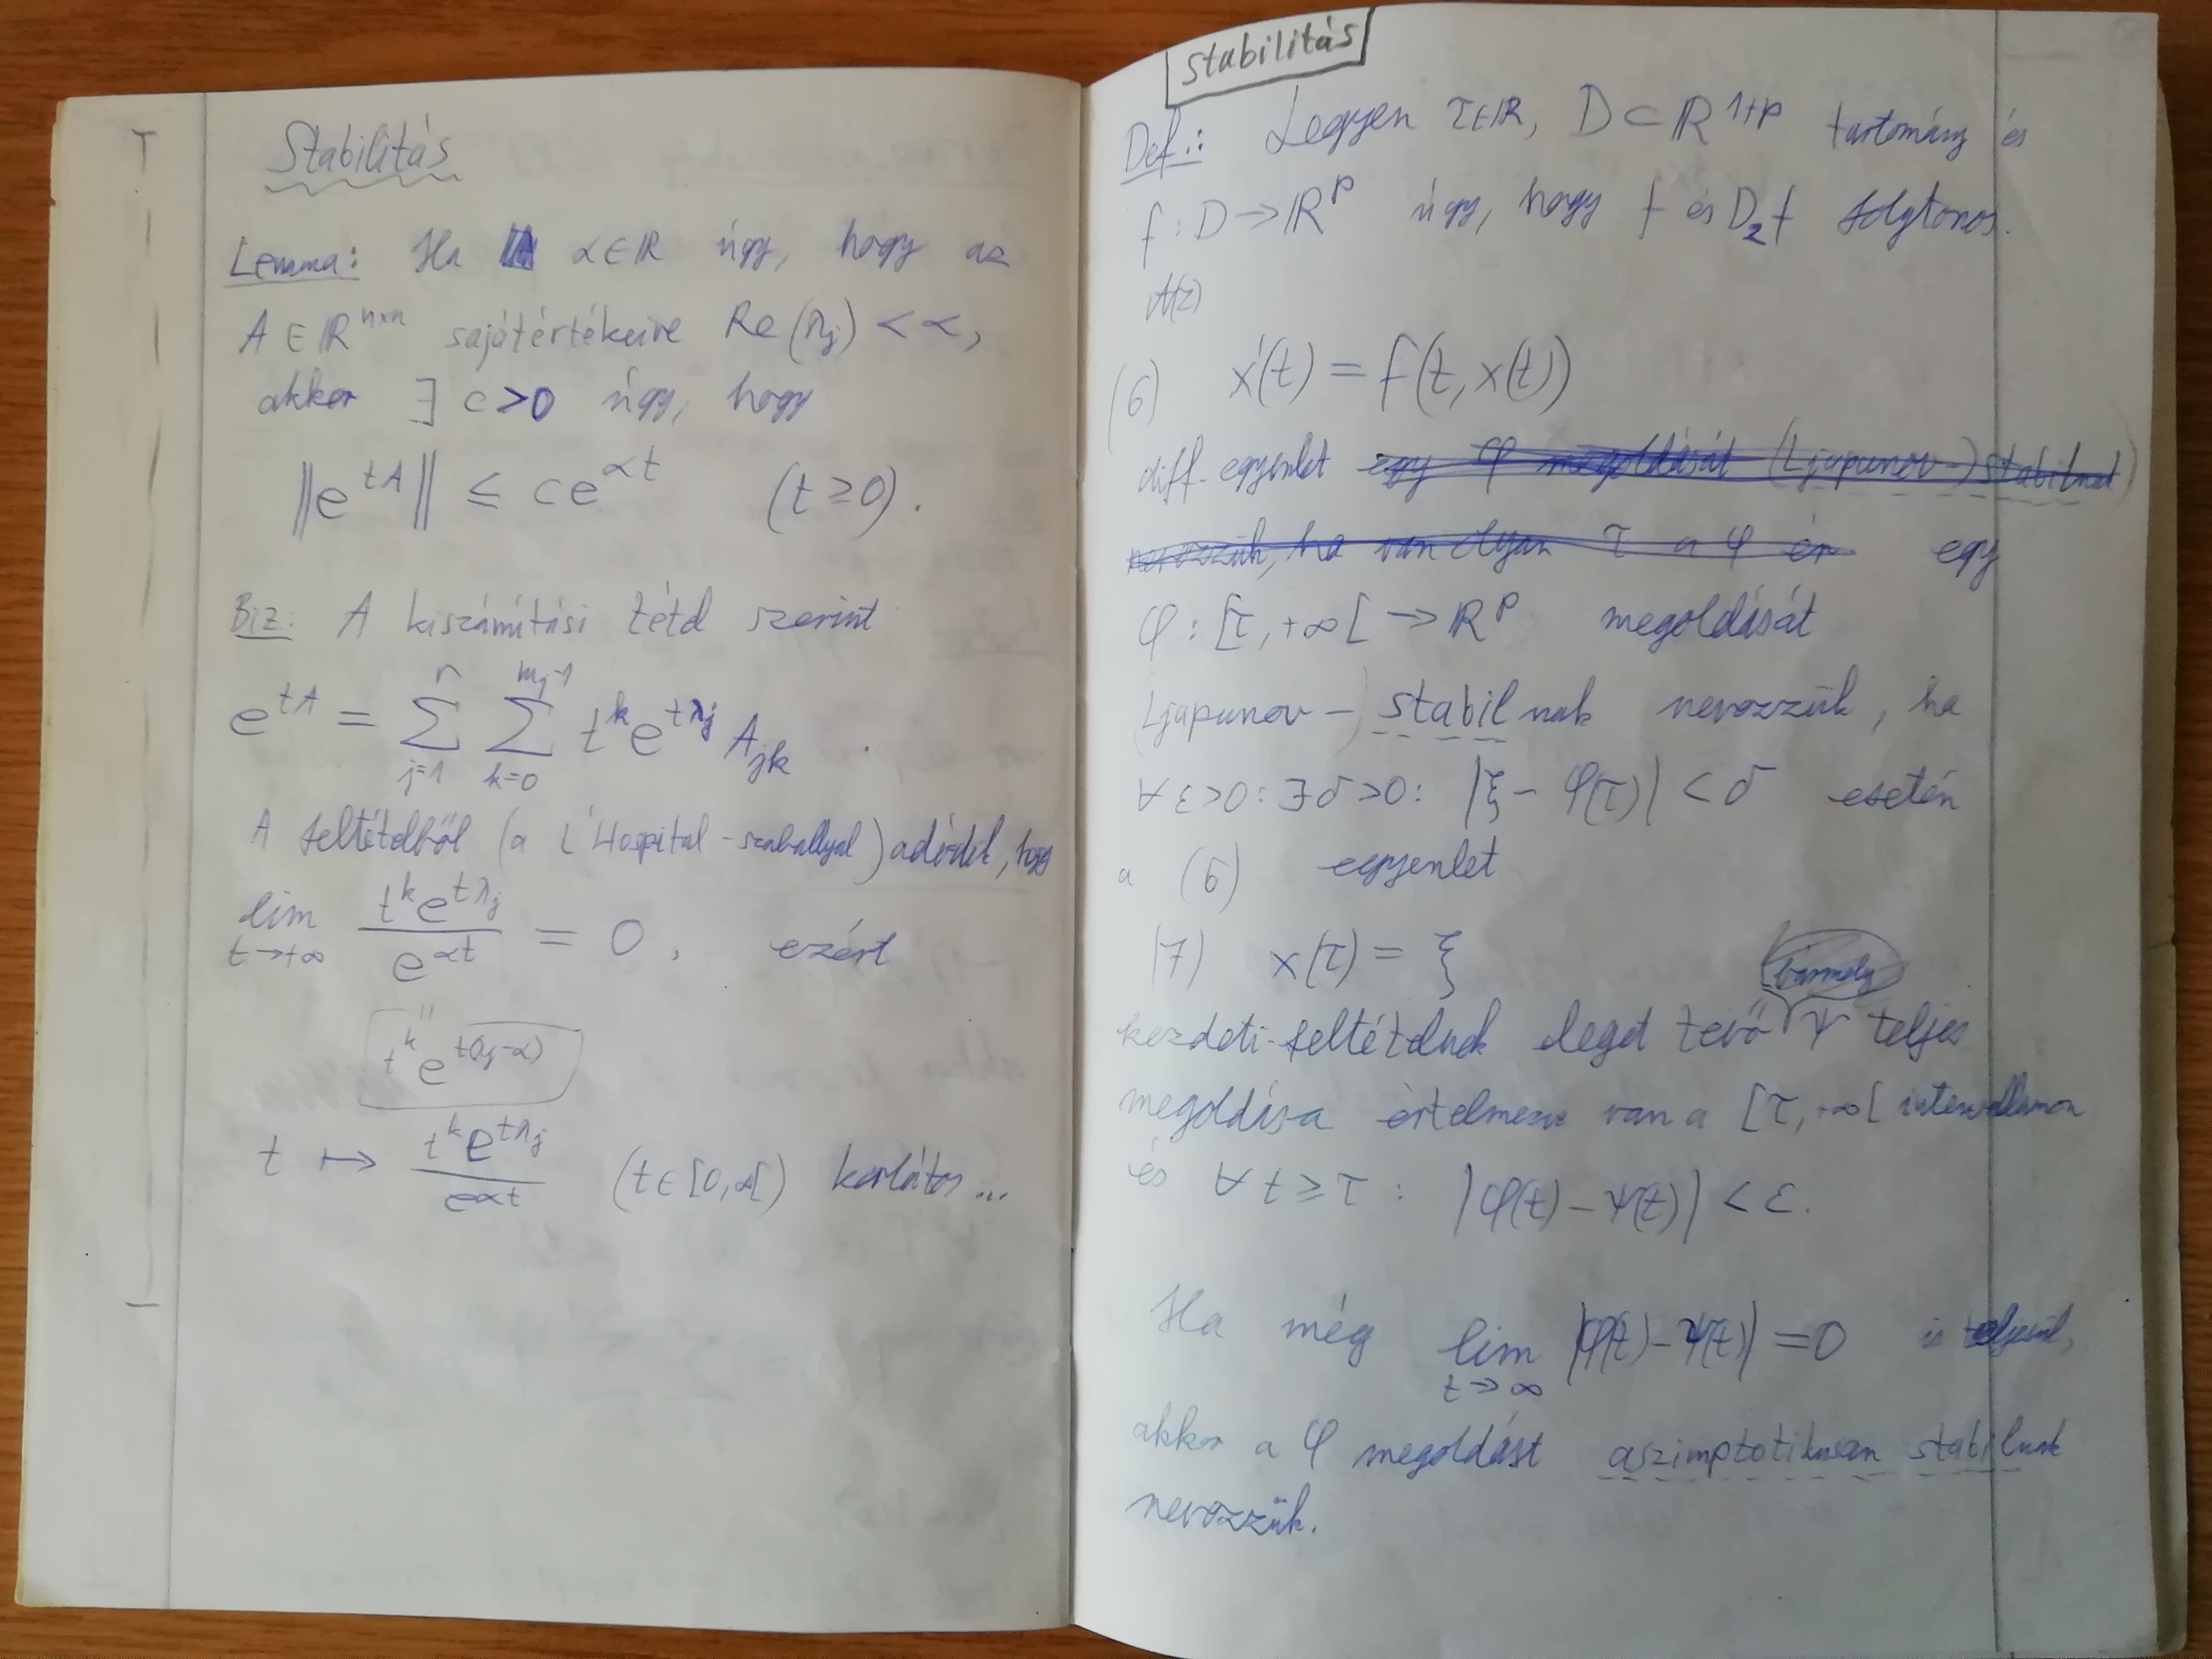 Stabilitás
Lemma: Ha α∈ℝ úgy, hogy az
A∈ℝⁿˣⁿ sajátértékeire Re(λj) < α,
akkor ∃ c>0 úgy, hogy
‖e^{tA}‖ ≤ ce^{αt} (t≥0).
Biz: A kiszámítási tétel szerint
e^{tA} = ∑_{j=1}^{r} ∑_{k=0}^{m_j-1} t^k e^{tλ_j} A_{jk}.
A feltételből (a L'Hospital-szaballyal) adódik, hogy
lim_{t→+∞} t^k e^{tλ_j} / e^{αt} = 0, ezért
t^k e^{t(λ_j-α)}
t ↦ t^k e^{tλ_j} / e^{αt} (t∈[0,∞[) korlátos...
Stabilitás
Def.: Legyen τ∈ℝ, D⊂ℝ^{1+p} tartomány és
f: D→ℝ^p úgy, hogy f és D₂f folytonos.
A(z)
(6) x'(t) = f(t,x(t))
diff. egyenlet egy φ megoldását (Ljapunov-) stabilnak
nevezzük, ha van olyan τ a φ ér egy
φ: [τ,+∞[ → ℝ^p megoldását
(Ljapunov-) stabilnak nevezzük, ha
∀ε>0: ∃δ>0: |ξ-φ(τ)| < δ esetén
a (6) egyenlet
(7) x(τ) = ξ
bármely
kezdeti-feltételnek eleget tevő ψ teljes
megoldása értelmezve van a [τ,+∞[ intervallumon
és ∀t≥τ: |φ(t)-ψ(t)| < ε.
Ha még lim_{t→∞} |φ(t)-ψ(t)| = 0 is teljesül,
akkor a φ megoldást aszimptotikusan stabilnak
nevezzük.